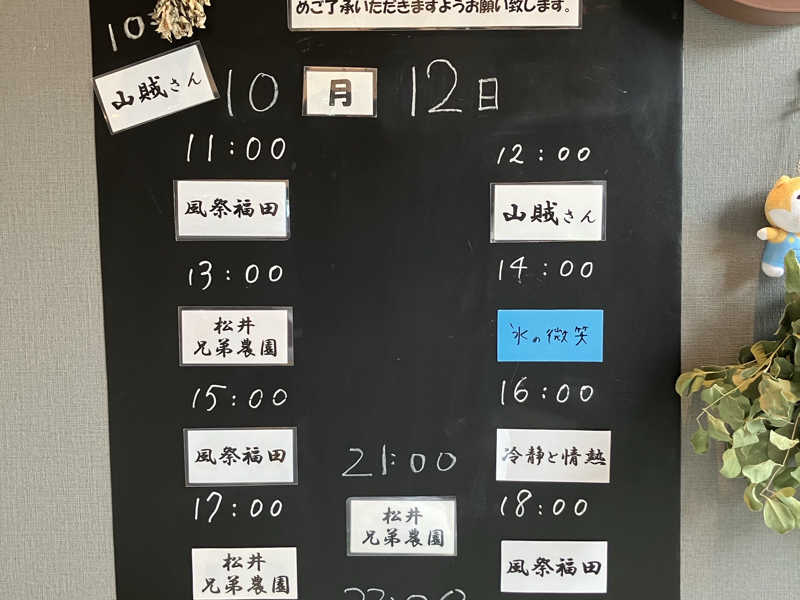 めご了承いただきますようお願い致します。
10:
山賊さん
10 月 12日
11:00
風祭福田
12:00
山賊さん
13:00
松井
兄弟農園
14:00
氷の微笑
15:00
風祭福田
16:00
冷静と情熱
17:00
松井
兄弟農園
18:00
風祭福田
21:00
松井
兄弟農園